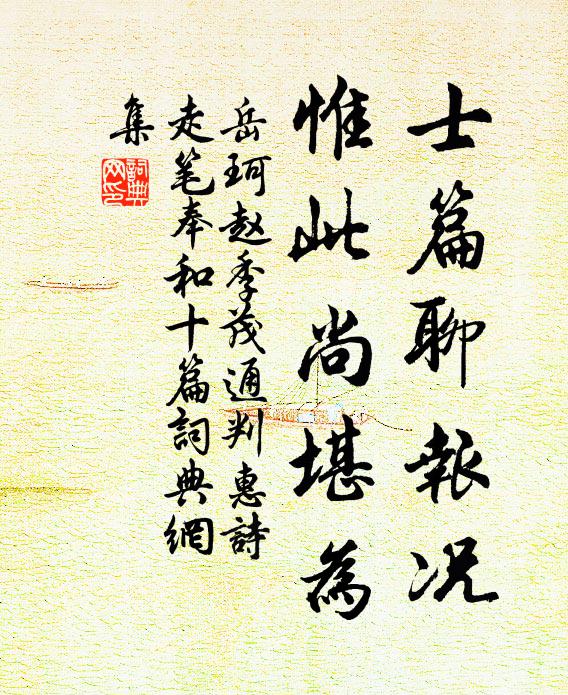 士篇聊報况
惟此尚堪為
岳珂赵季茂通判惠詩
走笔奉和十篇詞典網
集
詞典網印